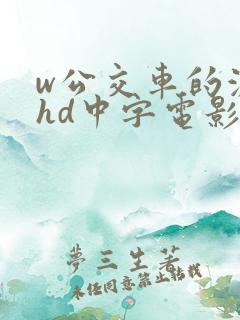 w公交車的
hd中字電影
夢三生若
未经同意禁止转载